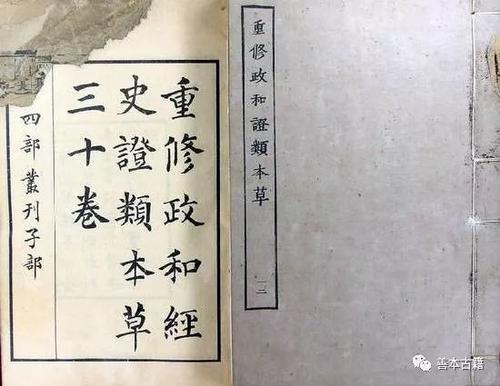 重修政和證類本草
一二
重修政和經
史證類本草
三十卷
四部叢刊子部
善本古籍